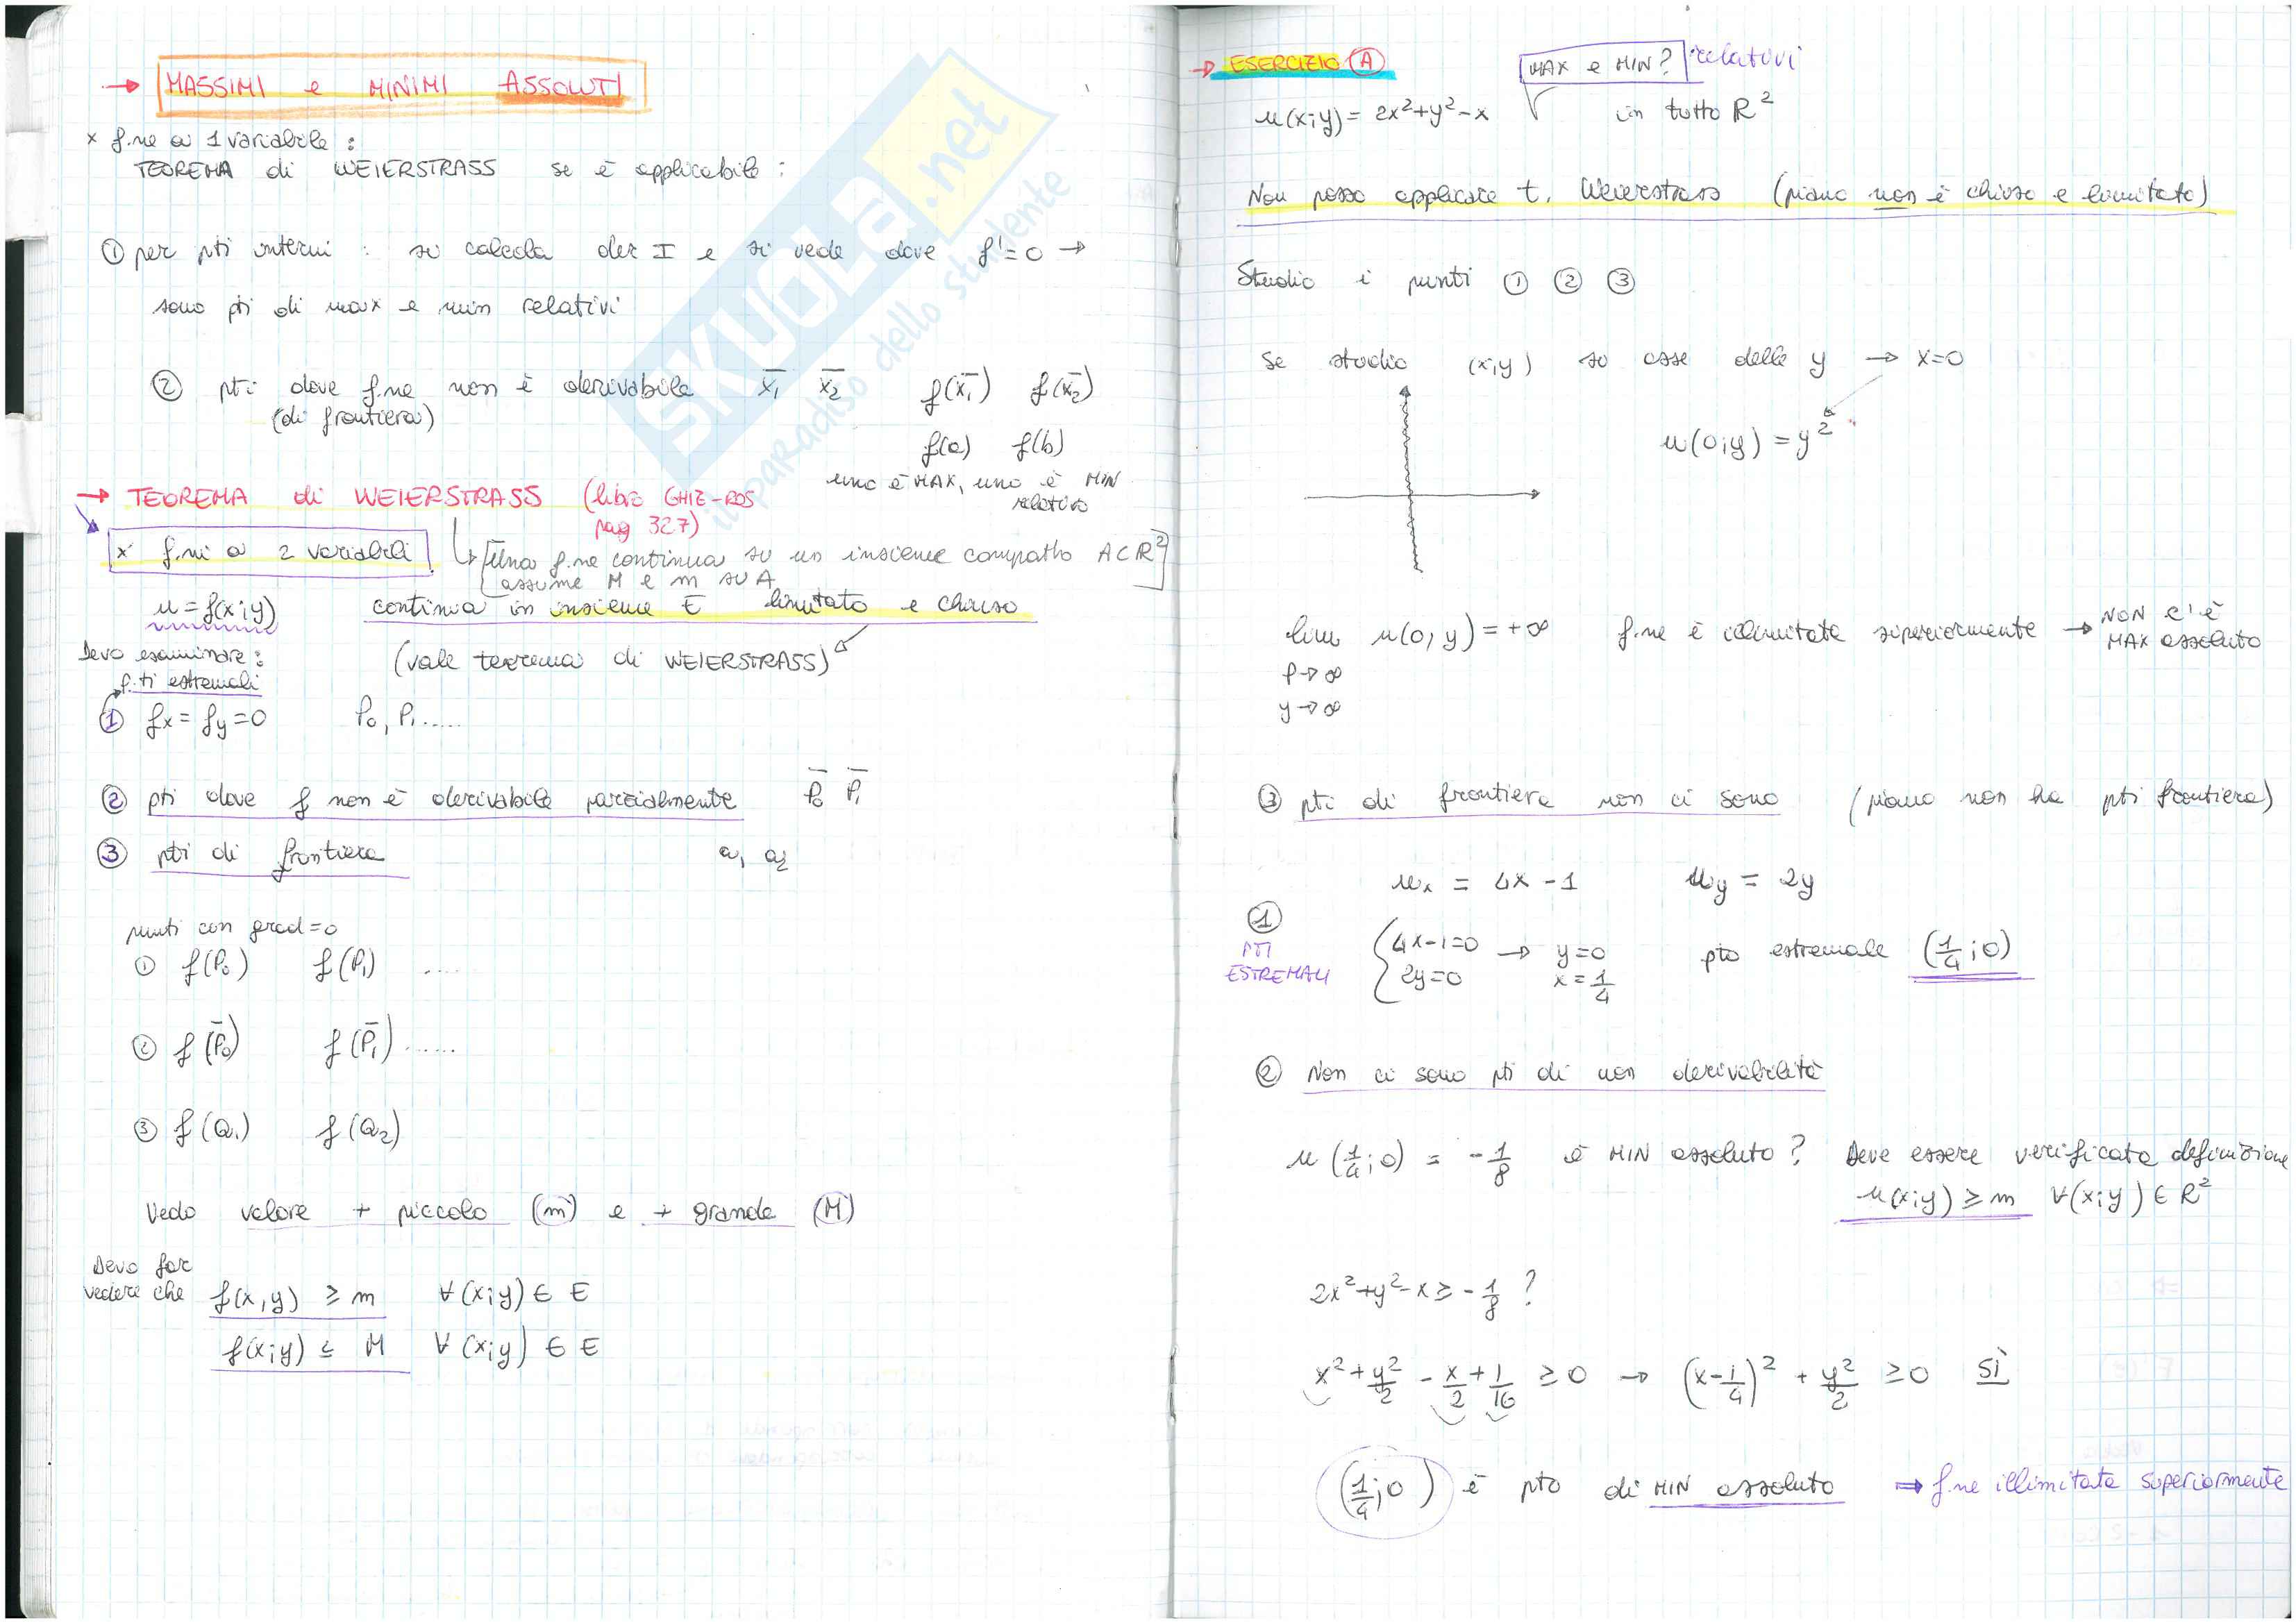 → MASSIMI e MINIMI ASSOLUTI
x f.ne a 1 variabile :
TEOREMA di WEIERSTRASS se è applicabile :
① per pti interni : si calcola der I e si vede dove f'=0 →
sono pti di max e min relativi
② pti dove f.ne non è derivabile x̄₁ x̄₂ f(x̄₁) f(x̄₂)
(di frontiera)
f(a) f(b)
uno è MAX, uno è MIN
relativo
→ TEOREMA di WEIERSTRASS (libro GHIZ-ROS
pag 327)
x f.ni a 2 variabili
[Una f.ne continua su un insieme compatto A⊂R²
assume M e m su A]
u=f(x;y) continua in insieme E limitato e chiuso
Devo esaminare : (vale teorema di WEIERSTRASS)
p.ti estremali
① fx = fy = 0 P₀, P₁ .....
② pti dove f non è derivabile parzialmente P̄₀ P̄₁
③ pti di frontiera Q₁ Q₂
punti con grad=0
① f(P₀) f(P₁) ....
② f(P̄₀) f(P̄₁) ......
③ f(Q₁) f(Q₂)
Vedo valore + piccolo (m) e + grande (M)
Devo far
vedere che f(x,y) ≥ m ∀(x;y) ∈ E
f(x;y) ≤ M ∀(x;y) ∈ E
SKUOLA.net
il paradiso dello studente
→ ESERCIZIO Ⓐ MAX e MIN? relativi
u(x;y) = 2x²+y²-x in tutto R²
Non posso applicare t. Weierstrass (piano non è chiuso e limitato)
Studio i punti ① ② ③
Se studio (x,y) su asse delle y → x=0
u(0;y) = y²
lim u(0,y) = +∞ f.ne è illimitata superiormente → NON C'È
MAX assoluto
P→∞
y→∞
③ pti di frontiera non ci sono (piano non ha pti frontiera)
uₓ = 4x-1 u_y = 2y
①
PTI
ESTREMALI
{4x-1=0 → y=0 pto estremale (1/4;0)
{2y=0 x=1/4
② Non ci sono pti di non derivabilità
u(1/4;0) = -1/8 è MIN assoluto? Deve essere verificata definizione
u(x;y) ≥ m ∀(x;y) ∈ R²
2x²+y²-x ≥ -1/8 ?
x²+y²/2 - x/2 + 1/16 ≥ 0 → (x-1/4)² + y²/2 ≥ 0 SÌ
(1/4;0) è pto di MIN assoluto ⇒ f.ne illimitata superiormente